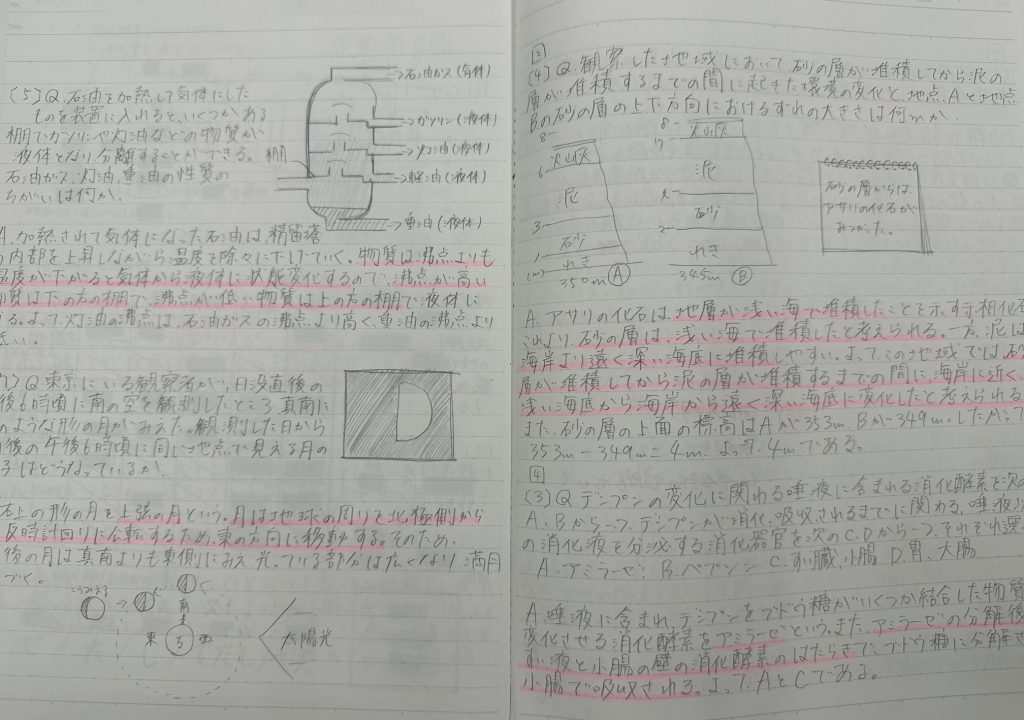 (5)Q.石油を加熱して気体にした
ものを装置に入れると、いくつかある
棚でガソリンや灯油などの物質が
液体となり分離することができる。
石油ガス、灯油、重油の性質の
ちがいは何か。
棚
→石油ガス(気体)
→ガソリン(液体)
→灯油(液体)
→軽油(液体)
→重油(液体)
A.加熱されて気体になった石油は、精留塔
の内部を上昇しながら温度を除々に下げていく。物質は沸点よりも
温度が下がると気体から液体に状態変化するので、沸点が高い
物質は下の方の棚で、沸点が低い物質は上の方の棚で液体に
る。よって、灯油の沸点は、石油ガスの沸点より高く、重油の沸点より
低い。
Q 東京にいる観察者が、日没直後の
後6時頃に南の空を観測したところ、真南に
のような形の月がみえた。観測した日から
後の午後6時頃に同じ地点で見える月の
はどうなっているか。
右上の形の月を上弦の月という。月は地球の周りを北極側から
反時計回りに公転するため、東の方向に移動する。そのため、
後の月は真南よりも東側にみえ、光っている部分は広くなり満月
づく。
南
東
西
太陽光
[2]
(4)Q.観察した地域において砂の層が堆積してから泥の
層が堆積するまでの間に起きた環境の変化と、地点Aと地点
Bの砂の層の上下方向におけるずれの大きさは何mか.
8
火山灰
6
泥
3
砂
1
れき
(m)
350m Ⓐ
8
火山灰
7
泥
4
砂
2
れき
345m Ⓑ
砂の層からは、
アサリの化石が
みつかった。
A.アサリの化石は、地層が浅い海で堆積したことを示す示相化石
これより、砂の層は、浅い海で堆積したと考えられる。一方、泥は
海岸より遠く深い海底に堆積しやすい。よって、この地域では、砂
層が堆積してから泥の層が堆積するまでの間に、海岸に近く、
浅い海底から海岸から遠く深い海底に変化したと考えられる
また、砂の層の上面の標高はAが353m、Bが349m。したがって
353m-349m=4m よって、4mである。
[4]
(3)Q デンプンの変化に関わる唾液に含まれる消化酵素を次の
A、Bから一つ、デンプンが消化、吸収されるまでに関わる、唾液以
の消化液を分泌する消化器官を次のC、Dから一つ、それぞれ選
A.アミラーゼ B.ペプシン C.すい臓、小腸 D.胃、大腸
A.唾液に含まれ、デンプンをブドウ糖がいくつか結合した物質
変化させる消化酵素をアミラーゼという。また、アミラーゼの分解後
すい液と小腸の壁の消化酵素のはたらきで、ブドウ糖に分解さ
小腸で吸収される。よって、AとCである。